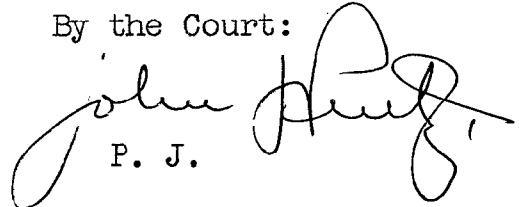 By the Court:
John
P. J.